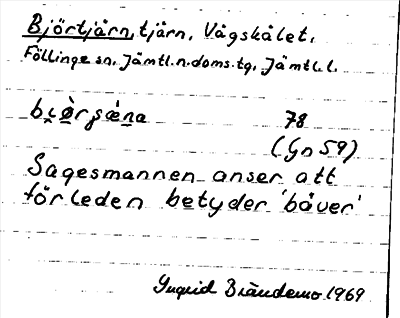 Björtjärn, tjärn, Vågskålet,
Föllinge sn, Jämtl.n.doms.tg, Jämtl.l.
78
(Gn 59)
Sagesmannen anser att
förleden betyder 'bäver'
Ingrid Brändemo 1969